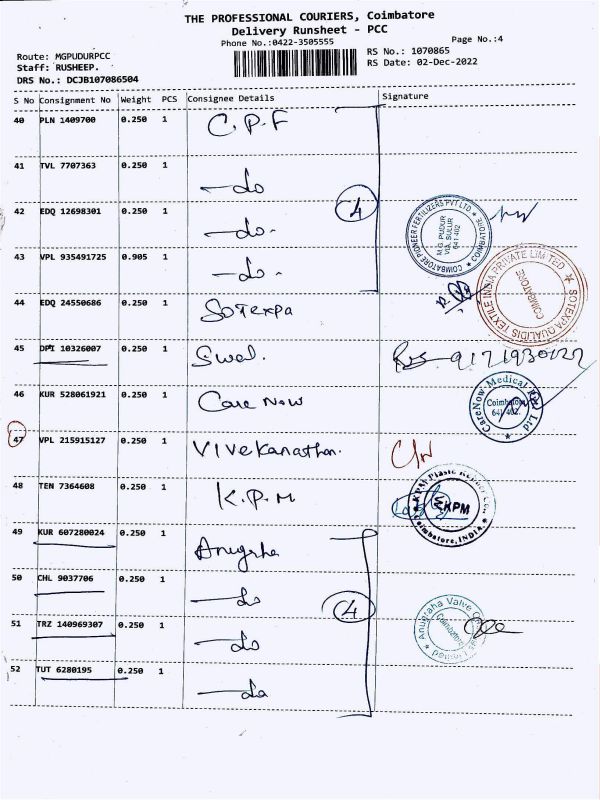 THE PROFESSIONAL COURIERS, Coimbatore
Delivery Runsheet - PCC
Phone No.:0422-3505555
Page No.:4
Route: MGPUDURPCC
RS No.: 1070865
Staff: RUSHEEP.
RS Date: 02-Dec-2022
DRS No.: DCJB107086504
S No Consignment No Weight PCS Consignee Details Signature
40 PLN 1409700 0.250 1 C.P.F
41 TVL 7707363 0.250 1 —do
42 EDQ 12698301 0.250 1 —do-
4
COIMBATORE PIONEER FERTILIZERS PVT LTD
M.G. PUDUR
VIA, SULUR
641 402
COIMBATORE
43 VPL 935491725 0.905 1 —do-
SOTEXPA QUALIDIS TEXTILE INDIA PRIVATE LIMITED
COIMBATORE
44 EDQ 24550686 0.250 1 SOTEXPA
45 DPI 10326007 0.250 1 Swel.
46 KUR 528061921 0.250 1 Care Now
CareNow Medical Pvt Ltd
Coimbatore
641 402.
47 VPL 215915127 0.250 1 Vivekanathan.
48 TEN 7364608 0.250 1 K.P.M
KPM
Coimbatore, INDIA.
49 KUR 607280024 0.250 1 Anugrha
50 CHL 9037706 0.250 1 —do
4
51 TRZ 140969307 0.250 1 —do
Anugraha Valve
Coimbatore
52 TUT 6280195 0.250 1 —do